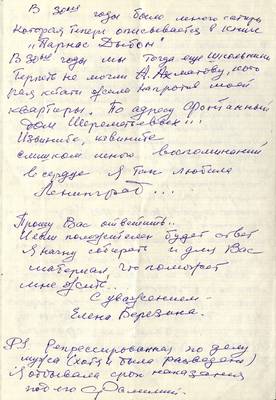 В 30ые годы было много сатиры
которая теперь описывается в книге
"Парнас Дыбом"
В 30ые годы мы тогда еще школьники
терпеть не могли А. Ахматову, кото
рая кстати жила напротив моей
квартиры. По адресу Фонтанный
дом Шереметьевых!!!
Извините, извините
слишком много воспоминаний
в сердце Я так любила
Ленинград...
Прошу Вас ответить..
И если положителен будет ответ
Я начну собирать и для Вас
материал, что поможет
мне жить...
С уважением -
Елена Березина.
PS. Репрессированная по делу
мужа (хотя я была разведена)
Я отбывала срок наказания
под его фамилией.